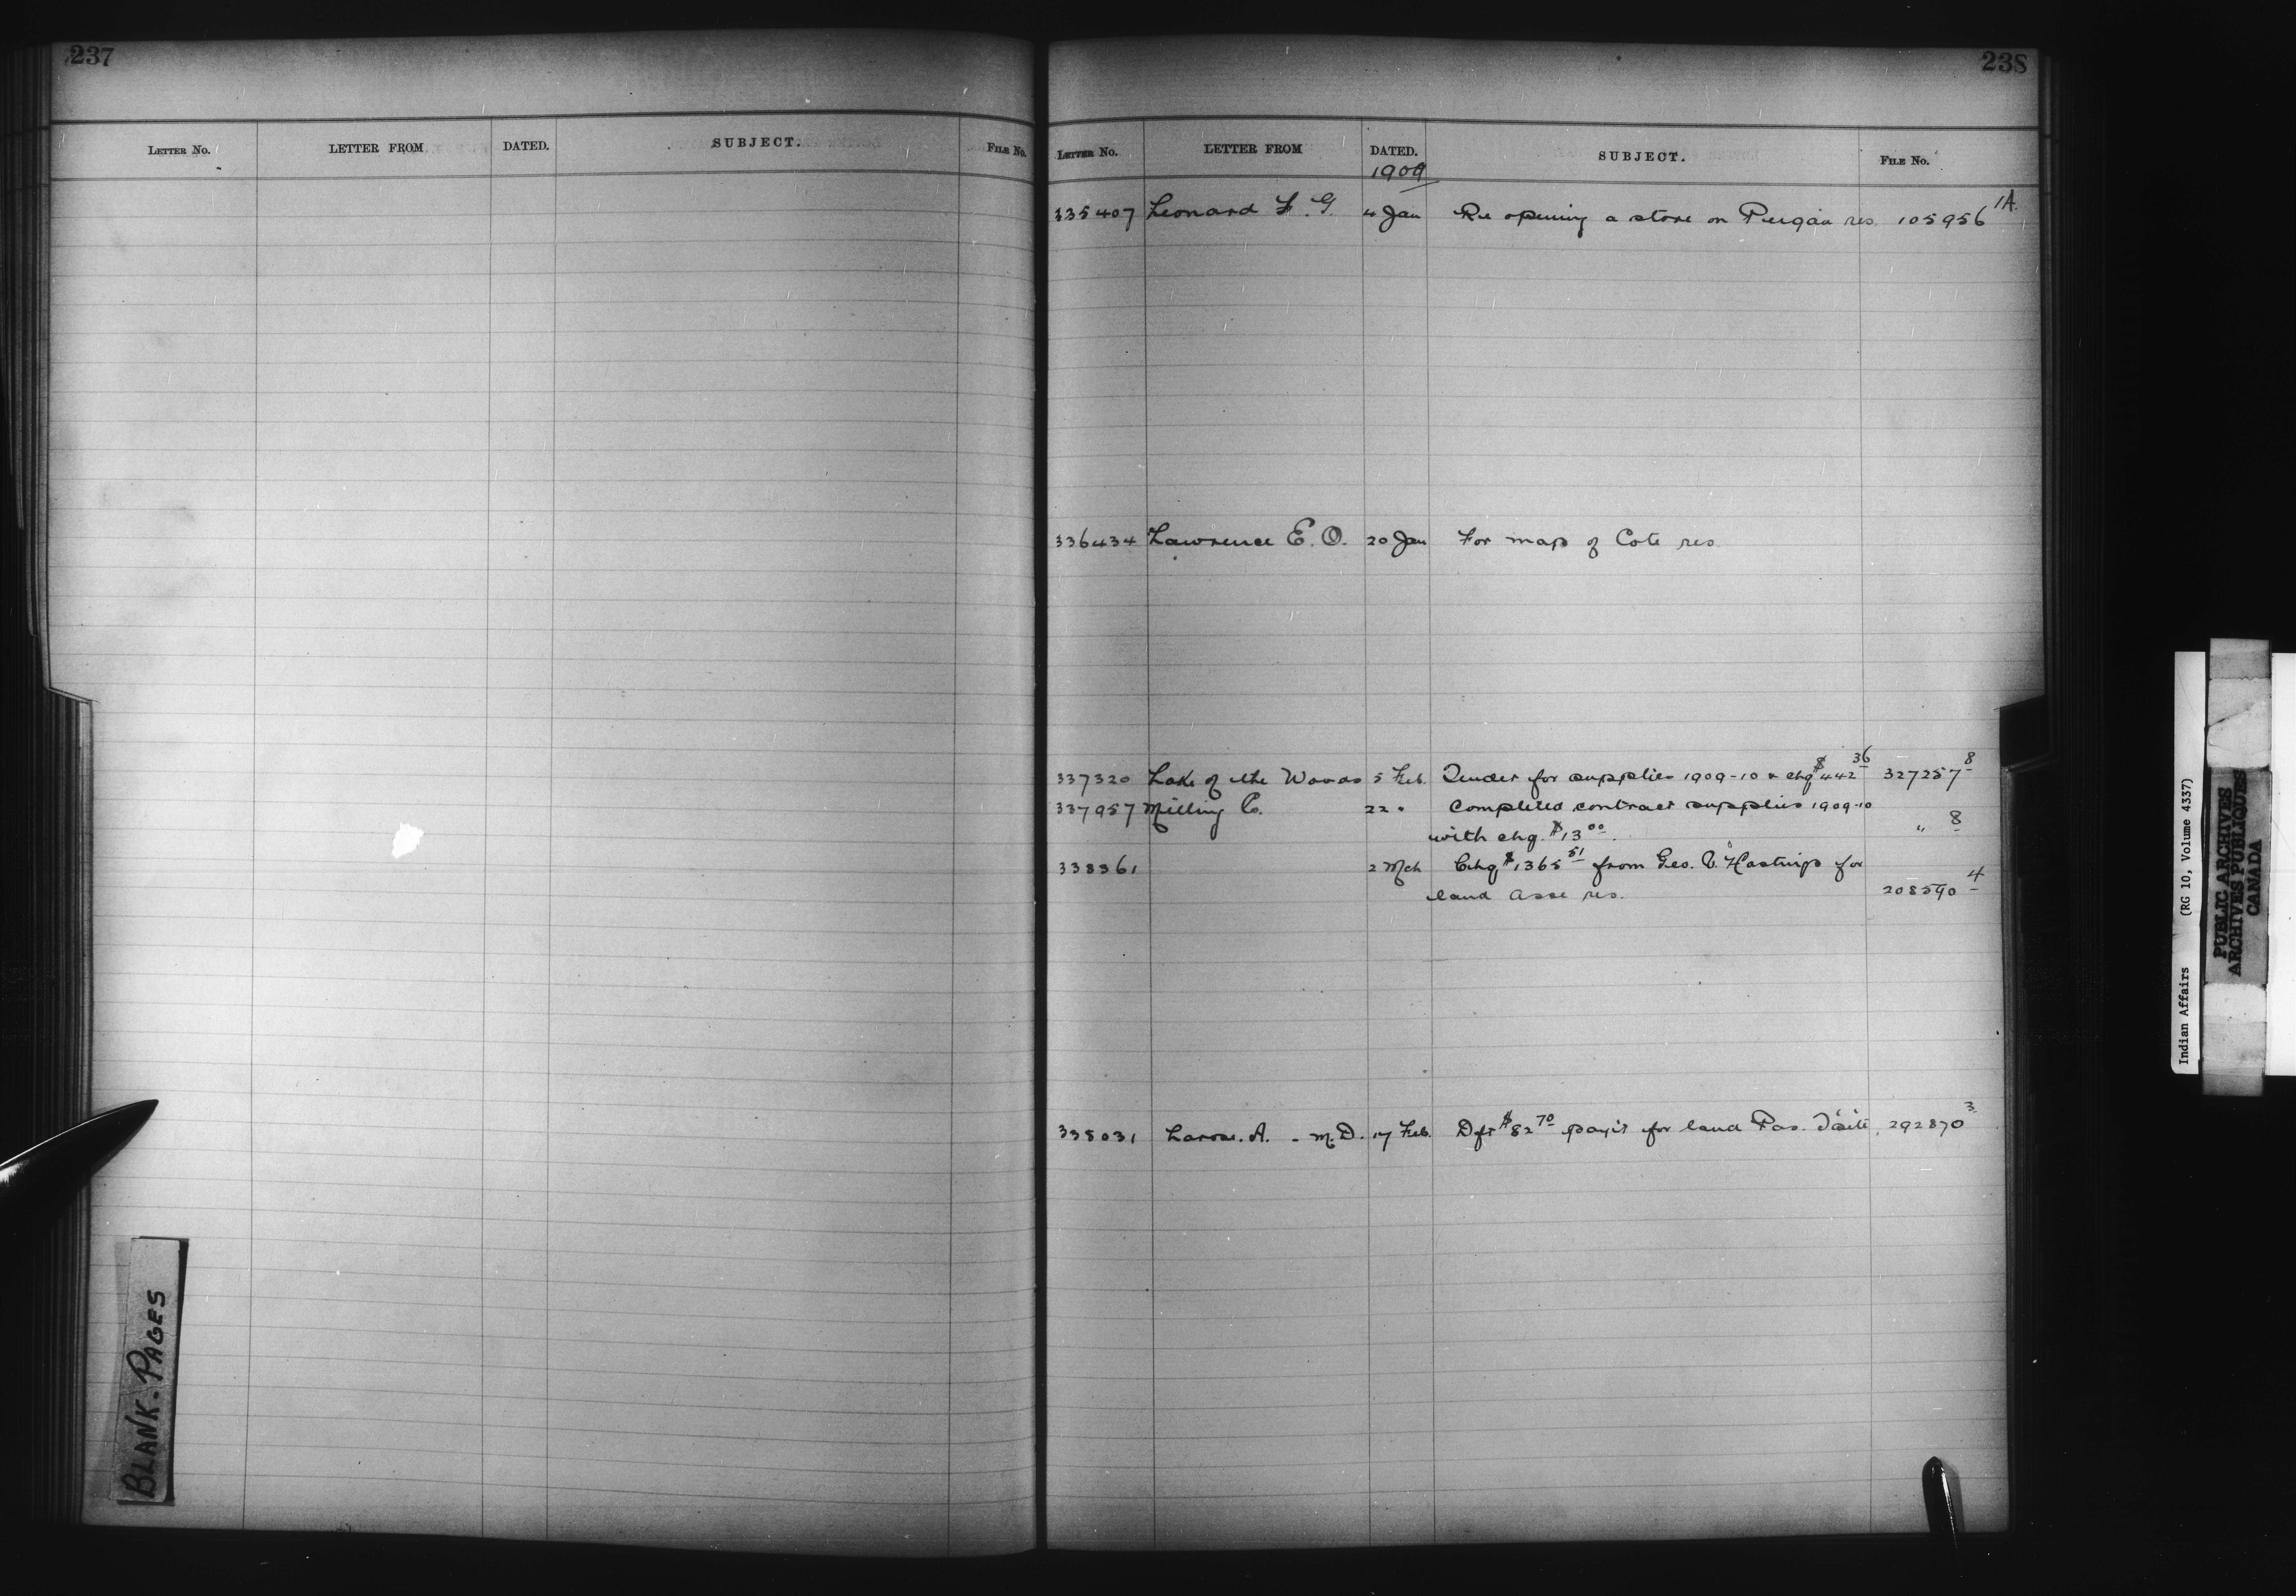 237
LETTER NO. LETTER FROM DATED. SUBJECT. FILE NO.
BLANK-PAGES
238
LETTER NO. LETTER FROM DATED. SUBJECT. FILE NO.
1909
335407 Leonard F. G. 4 Jan Re opening a store on res. 105956 1A.
336434 Lawrence E. O. 20 Jan For map of Cote res.
337320 Lake of the Woods 5 Feb. Tender for supplies 1909-10 & chq $442 36 327257 8
337957 Milling Co. 22 " Completed contract supplies 1909-10
with chq. $13 00. " 8
338361 2 Mch Chq $1365 51 from Geo. V. Hastings for
land Asse res. 208590 4
338031 Larose. A. - M.D. 17 Feb. Dft $82 70 pay't for land Pas. T'site. 292870 3
Indian Affairs (RG 10, Volume 4337)
PUBLIC ARCHIVES
ARCHIVES PUBLIQUES
CANADA